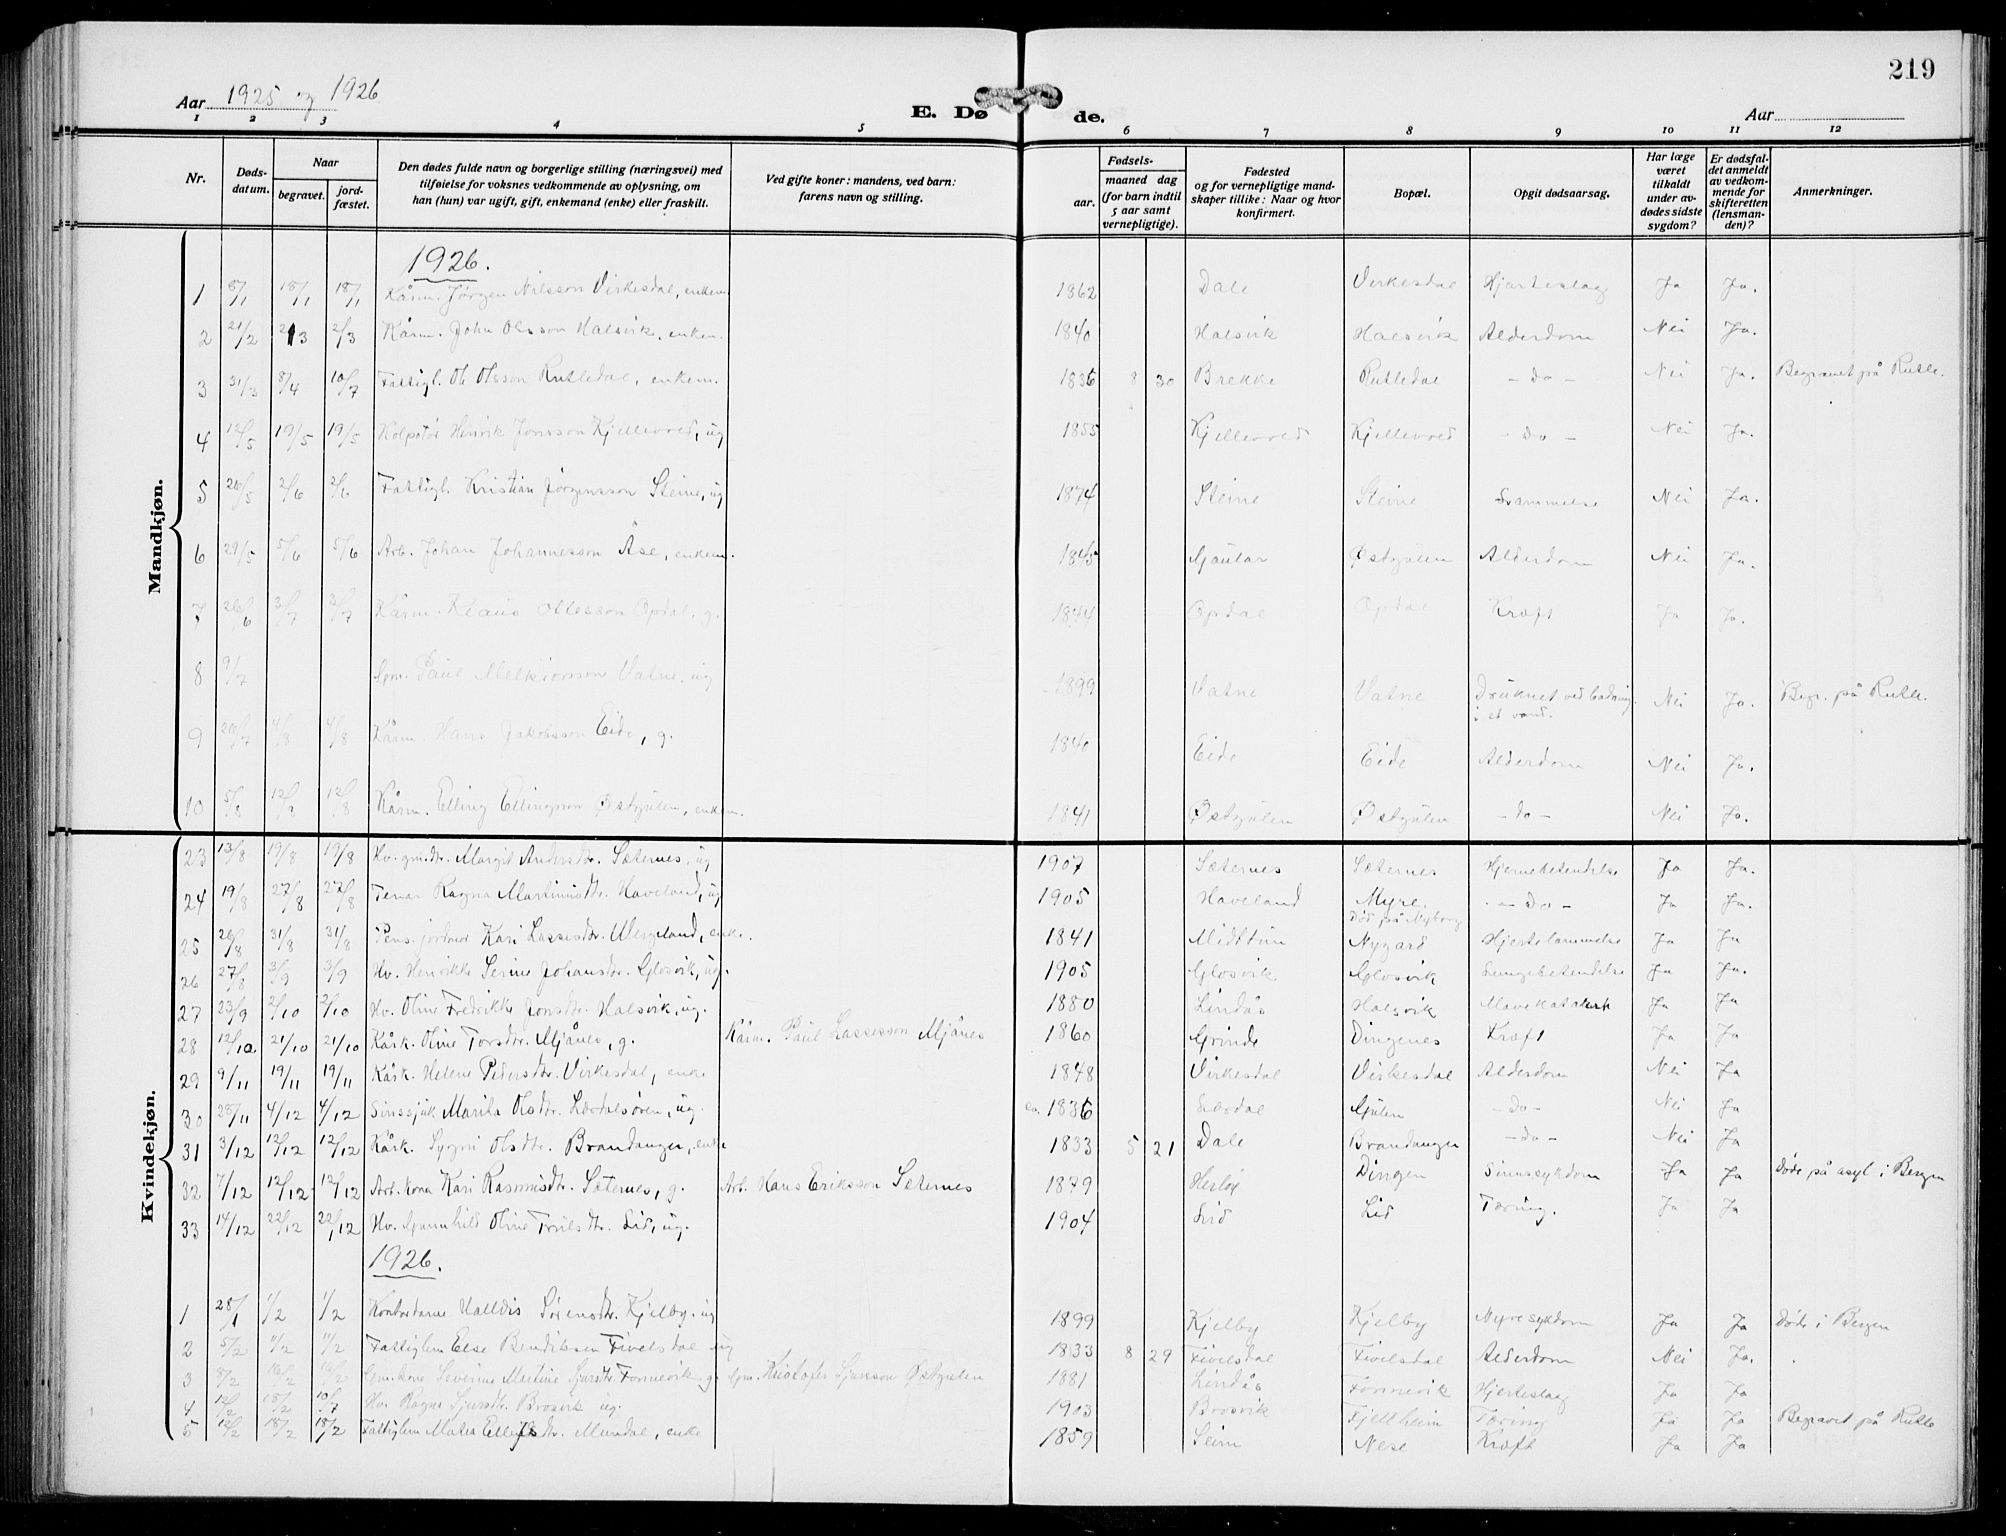 219
Aar 1925 og 1926
E. Døde.
Aar
1 2 3 4 5 6 7 8 9 10 11 12
Nr.
Døds-datum.
Naar
begravet.
jord-fæstet.
Den dødes fulde navn og borgerlige stilling (næringsvei) med tilføielse for voksnes vedkommende av oplysning, om han (hun) var ugift, gift, enkemand (enke) eller fraskilt.
Ved gifte koner: mandens, ved barn: farens navn og stilling.
Fødsels-
aar.
maaned dag
(for barn indtil 5 aar samt vernepligtige).
Fødested og for vernepligtige mandskaper tillike: Naar og hvor konfirmert.
Bopæl.
Opgit dødsaarsag.
Har læge været tilkaldt under avdødes sidste sygdom?
Er dødsfaldet anmeldt av vedkommende for skifteretten (lensmanden)?
Anmerkninger.
Mandkjøn.
1926.
1 8/1 18/1 18/1 Kårm. Jørgen Nilsson Virkesdal, enkem. 1862 Dale Virkesdal Hjerteslag Ja Ja.
2 21/2 2/3 2/3 Kårm. John Olsson Halsvik, enkem. 1840 Halsvik Halsvik Alderdom Nei Ja.
3 31/3 8/4 10/7 Fattigl. Ole Olsson Rutledal, enkem. 1836 8 30 Brekke Rutledal - do - Nei Ja. Begravet på Rutle.
4 12/5 19/5 19/5 Henrik Jonsson Kjellevold, ug 1855 Kjellevold Kjellevold - do - Nei Ja.
5 26/5 2/6 2/6 Fattigl. Kristian Jørgensson Steine, ug 1874 Steine Steine Nei Ja.
6 29/5 5/6 5/6 Arb. Johan Johannesson Åse, enkem. 1845 Gaular Østgulen Alderdom Nei Ja.
7 26/6 3/7 3/7 Kårm. Klaus Ollesson Opdal, g. 1844 Opdal Opdal Kræft Ja Ja.
8 9/7 Gm. Paul Melkiorsson Vatne, ug 1899 Vatne Vatne Druknet ved badning i et vand. Nei Ja. Begr. på Rutle.
9 26/7 4/8 4/8 Kårm. Hans Jakobsson Eide, g. 1840 Eide Eide Alderdom Nei Ja.
10 5/8 12/8 12/8 Kårm. Elling Ellingsson Østgulen, enkem. 1841 Østgulen Østgulen - do - Nei Ja.
Kvindekjøn.
23 13/8 19/8 19/8 Hv. gm.dtr. Margit Andersdtr. Sæternes, ug 1907 Sæternes Sæternes Hjernebetendelse Ja Ja.
24 19/8 27/8 27/8 Tenar Ragna Martinusdtr. Haveland, ug 1905 Haveland Myre. Død på Nyborg - Do - Ja Ja.
25 26/8 31/8 31/8 Pens. jordmor Kari Lassesdtr. Wergeland, enke. 1841 Midttun Nygard Hjertelammelse Ja Ja
26 27/8 3/9 3/9 Hv. Henrikke Serine Johansdtr. Glosvik, ug. 1905 Glosvik Glosvik Lungebetendelse Ja Ja.
27 23/9 2/10 2/10 Hv. Oline Fredrikke Jonsdtr. Halsvik, ug. 1880 Lindås Halsvik Mavekatarrh Ja Ja
28 12/10 21/10 21/10 Kårk. Oline Torsdtr. Mjånes, g. Kårm. Paul Lassesson Mjånes 1860 Grinde Dingenes Kræft Ja Ja
29 9/11 19/11 19/11 Kårk. Helene Pedersdtr. Virkesdal, enke 1848 Virkesdal Virkesdal Alderdom Nei Ja
30 28/11 4/12 4/12 Sinssjuk Marita Olsdtr. Lærdalsøren, ug. ca. 1836 Lærdal Gulen - Do - Nei Ja
31 3/12 12/12 12/12 Kårk. Sygni Olsdtr. Brandanger, enke 1833 5 21 Dale Brandanger - do - Nei Ja
32 7/12 12/12 12/12 Arb. kona Kari Rasmusdtr. Sæternes, g. Arb. Hans Eriksson Sæternes 1879 Herløy Dingen Sinnssykdom Ja Ja Døde på asyl i Bergen
33 14/12 22/12 22/12 Hv. Gunnhild Oline Trulsdtr. Lid, ug. 1904 Lid Lid Tæring. Ja Ja
1926.
1 28/1 1/2 1/2 Kontordame Halldis Sørensdtr. Kjelby, ug 1899 Kjelby Kjelby Nyresykdom Ja Ja Døde i Bergen
2 5/2 11/2 11/2 Fattiglem Else Bendiksen Fivelsdal ug 1833 8 29 Fivelsdal Fivelsdal Alderdom Nei Ja.
3 8/2 16/2 16/2 Gm.kone Severine Martine Sjursdtr. Fonnevik g. Gm. Kristofer Sjursson Østgulen 1881 Lindås Fonnevik Hjerteslag Ja Ja
4 12/2 18/2 10/7 Hv. Ragna Sjursdtr. Brosvik ug. 1903 Brosvik Fjellheim Tæring Ja Ja Begravet på Rutle
5 12/2 18/2 18/2 Fattiglem Mates Ellifsdtr. Mundal, enke 1859 Seim Nese Kræft Ja Ja